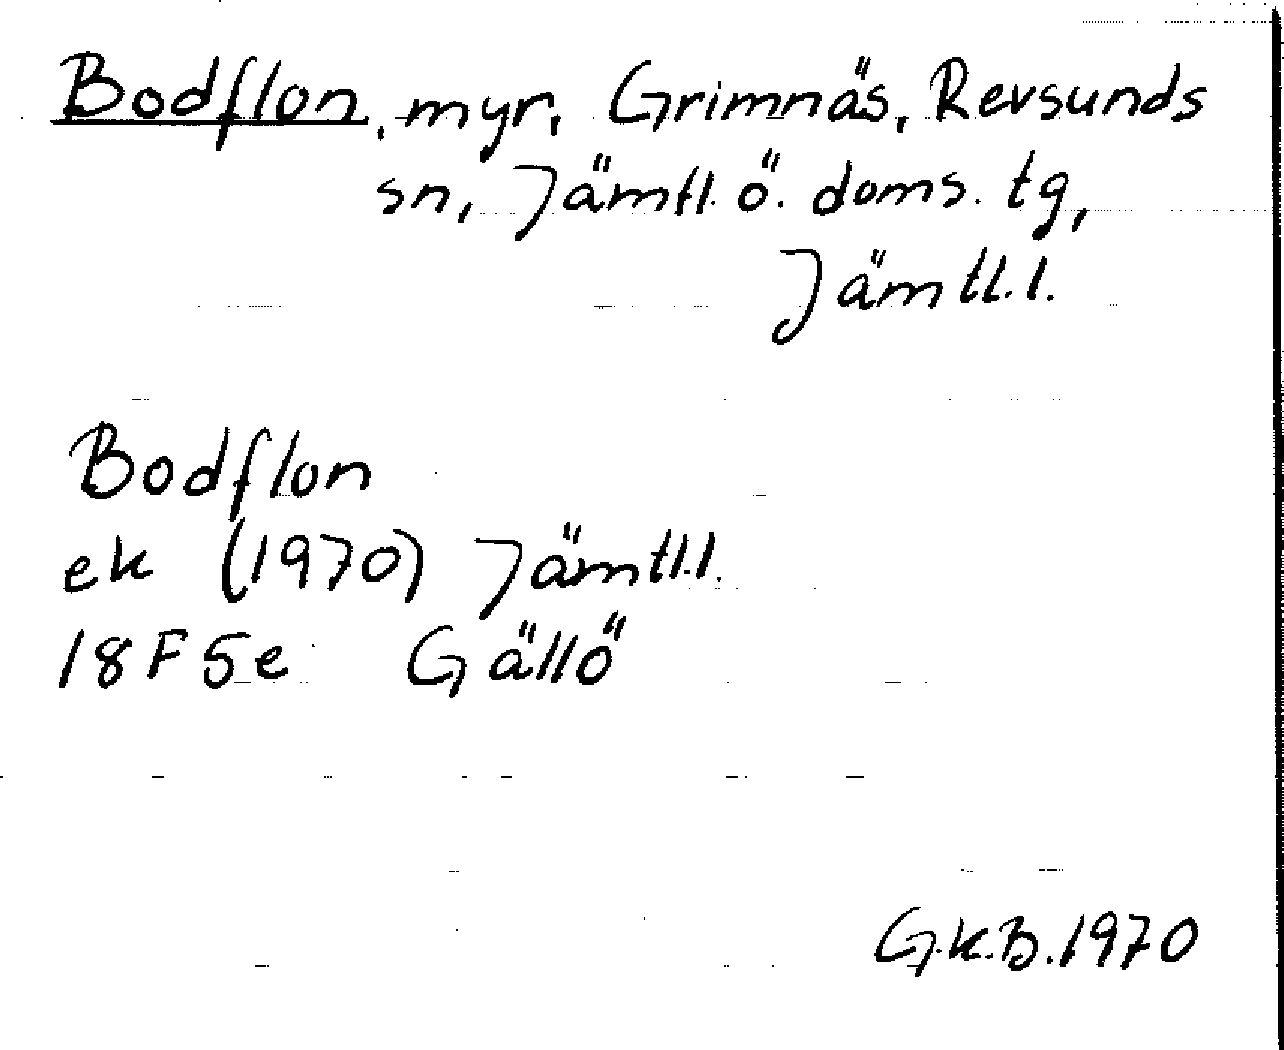 Bodflon, myr, Grimnäs, Revsunds
sn, Jämtl. ö. doms. tg,
Jämtl. l.
Bodflon
ek (1970) Jämtl.l.
18F5e Gällö
G.K.B. 1970